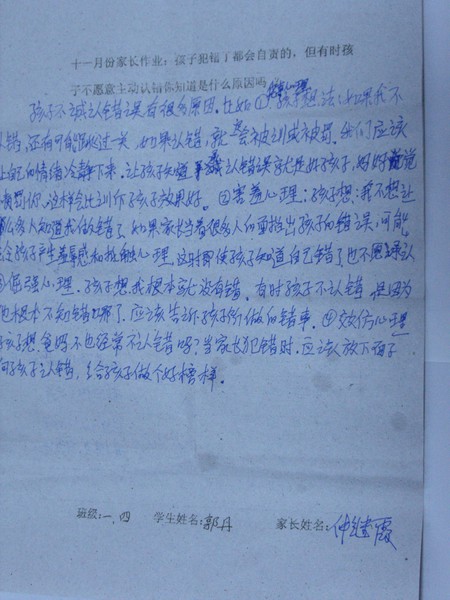 十一月份家长作业：孩子犯错了都会自责的，但有时孩
子不愿意主动认错你知道是什么原因吗
孩子不认错误有很多原因。比如①孩子想法：如果我不
认错，还有可能混过一关，如果认错，就会被训或被罚。我们应该
自己的情绪冷静下来。让孩子知道承认错误就是好孩子，妈妈
罚你，这样会比训斥孩子效果好。②害羞心理：孩子想：我不想让
么多人知道我做错了，如果家长当着很多人的面指出孩子的错误，可能
会令孩子产生羞辱感和抵触心理。这时即使孩子知道自己错了也不愿承认
③倔强心理。孩子想我根本就没有错。有时孩子不认错，是因为
他根本不知错哪了，应该告诉孩子你所做的错事。④效仿心理
孩子想，爸妈不也经常不认错吗？当家长犯错时，应该放下面子
向孩子认错，给孩子做个好榜样。
班级：一.四 学生姓名：郭丹 家长姓名：仲继霞